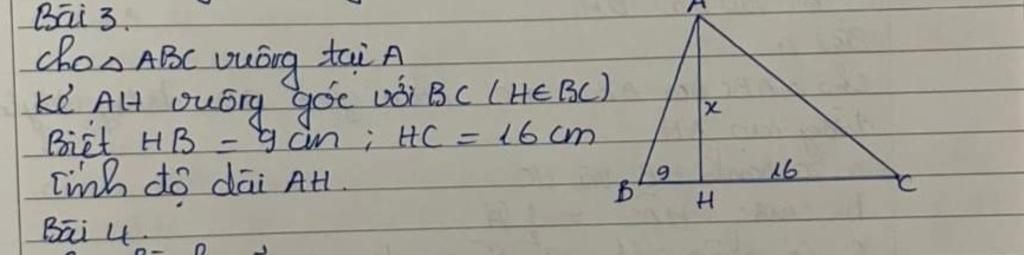 Bài 3.
Cho △ ABC vuông tại A
Kẻ AH vuông góc với BC (H∈BC)
Biết HB = 9 cm ; HC = 16 cm
Tính độ dài AH.
Bài 4.
A
x
B 9 H 16 C